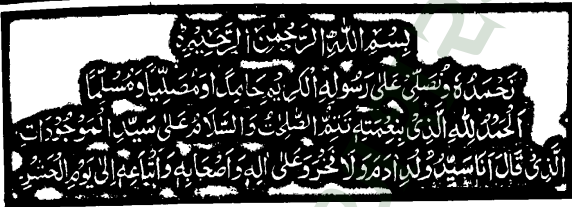 بِسْمِ اللهِ الرَّحْمٰنِ الرَّحِيْمِ
نَحْمَدُهٗ وَنُصَلِّيْ عَلٰى رَسُوْلِهِ الْكَرِيْمِ حَامِدًا وَمُصَلِّيًا وَمُسَلِّمًا
اَلْحَمْدُ لِلّٰهِ الَّذِيْ بِنِعْمَتِهٖ تَتِمُّ الصّٰلِحٰتُ وَالسَّلَامُ عَلٰى سَيِّدِ الْمَوْجُوْدَاتِ
الَّذِيْ قَالَ اَنَا سَيِّدُ وُلْدِ اٰدَمَ وَلَا فَخْرَ وَعَلٰى اٰلِهٖ وَاَصْحَابِهٖ وَاَتْبَاعِهٖ اِلٰى يَوْمِ الْحَشْرِ